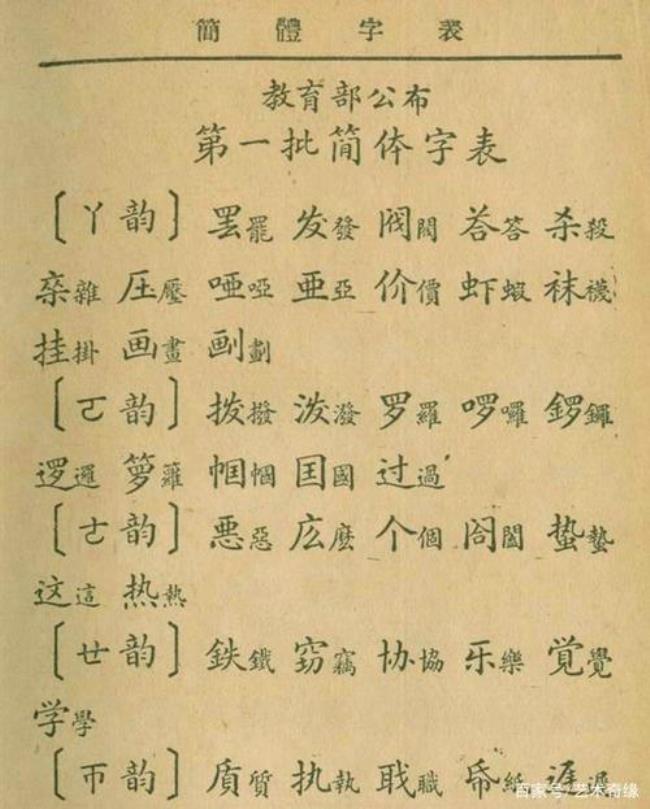 簡體字表
教育部公布
第一批简体字表
〔ㄚ韵〕 罢罷 发發 阀閥 荅答 杀殺
杂雜 压壓 哑啞 亜亞 价價 虾蝦 袜襪
挂掛 画畫 劃
〔ㄛ韵〕 拨撥 泼潑 罗羅 啰囉 锣鑼
逻邏 箩籮 帼幗 囯國 过過
〔ㄜ韵〕 悪惡 庅麽 个個 阁閣 蛰蟄
这這 热熱
〔ㄝ韵〕 鉄鐵 窃竊 协協 乐樂 覚覺
学學
〔ㄭ韵〕 质質 执執 职職 帋紙 遅遲
百家号/艺术奇缘